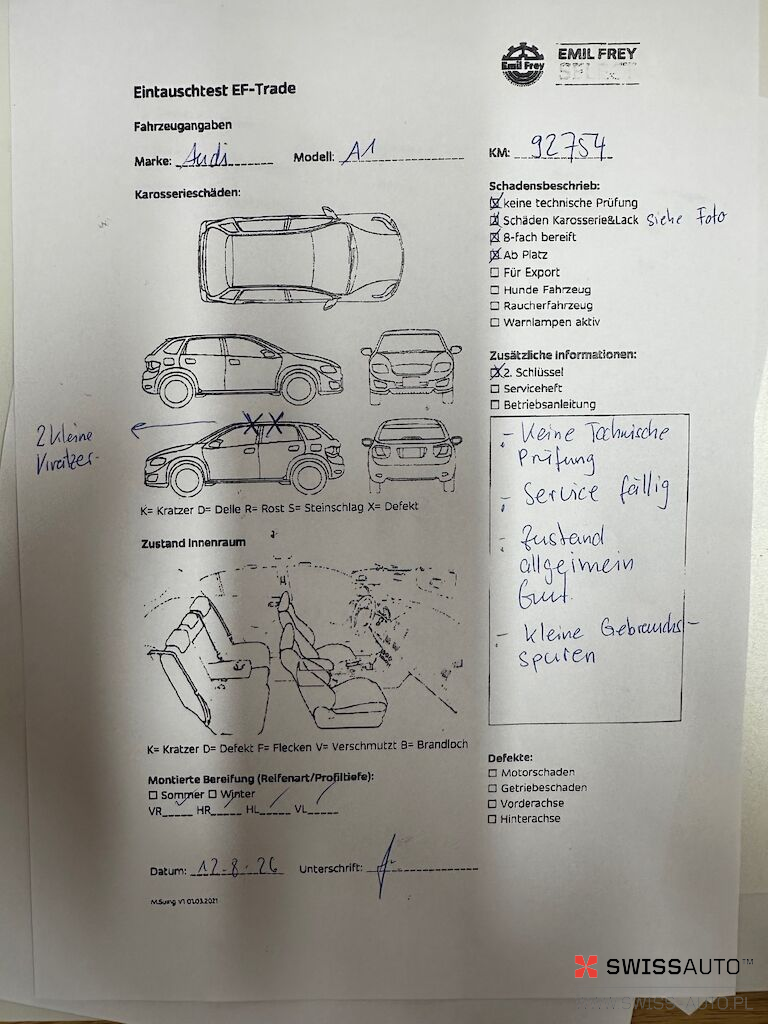 Emil Frey
EMIL FREY
SELECT
Eintauschtest EF-Trade
Fahrzeugangaben
Marke: Audi Modell: A1 KM: 92754
Karosserieschäden:
Schadensbeschrieb:
keine technische Prüfung
Schäden Karosserie&Lack siehe Foto
8-fach bereift
Ab Platz
Für Export
Hunde Fahrzeug
Raucherfahrzeug
Warnlampen aktiv
Zusätzliche Informationen:
2. Schlüssel
Serviceheft
Betriebsanleitung
2 kleine
X X
K= Kratzer D= Delle R= Rost S= Steinschlag X= Defekt
- Keine Technische
Prüfung
- Service fällig
- Zustand
allgeimein
Gut.
- kleine Gebrauchs-
spuren
Zustand Innenraum
K= Kratzer D= Defekt F= Flecken V= Verschmutzt B= Brandloch
Montierte Bereifung (Reifenart/Profiltiefe):
Sommer Winter
VR HR HL VL
Defekte:
Motorschaden
Getriebeschaden
Vorderachse
Hinterachse
Datum: 12.8.26 Unterschrift:
V1 01.03.2021
SWISSAUTO™
WWW.SWISS-AUTO.PL